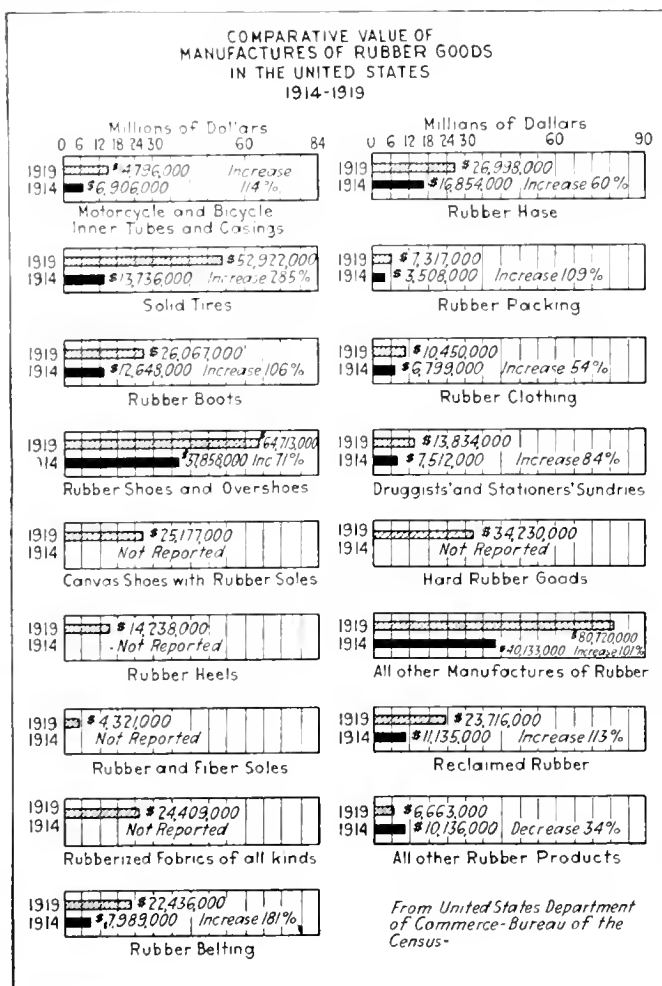 COMPARATIVE VALUE OF
MANUFACTURES OF RUBBER GOODS
IN THE UNITED STATES
1914-1919
Millions of Dollars
0 6 12 18 24 30 60 84
1919 $4,796,000 Increase
1914 $6,906,000 114%
Motorcycle and Bicycle
Inner Tubes and Casings
1919 $52,922,000
1914 $13,736,000 Increase 285%
Solid Tires
1919 $26,067,000
1914 $12,648,000 Increase 106%
Rubber Boots
1919 $64,713,000
14 $37,858,000 Inc 71%
Rubber Shoes and Overshoes
1919 $25,177,000
1914 Not Reported
Canvas Shoes with Rubber Soles
1919 $14,238,000
1914 Not Reported
Rubber Heels
1919 $4,321,000
1914 Not Reported
Rubber and Fiber Soles
1919 $24,409,000
1914 Not Reported
Rubberized Fabrics of all kinds
1919 $22,436,000
1914 $7,989,000 Increase 181%
Rubber Belting
Millions of Dollars
0 6 12 18 24 30 60 90
1919 $26,998,000
1914 $16,854,000 Increase 60%
Rubber Hose
1919 $7,317,000
1914 $3,508,000 Increase 109%
Rubber Packing
1919 $10,450,000
1914 $6,799,000 Increase 54%
Rubber Clothing
1919 $13,834,000
1914 $7,512,000 Increase 84%
Druggists' and Stationers' Sundries
1919 $34,230,000
1914 Not Reported
Hard Rubber Goods
1919 $80,720,000
1914 $40,133,000 Increase 101%
All other Manufactures of Rubber
1919 $23,716,000
1914 $11,135,000 Increase 113%
Reclaimed Rubber
1919 $6,663,000
1914 $10,136,000 Decrease 34%
All other Rubber Products
From United States Department
of Commerce-Bureau of the
Census-